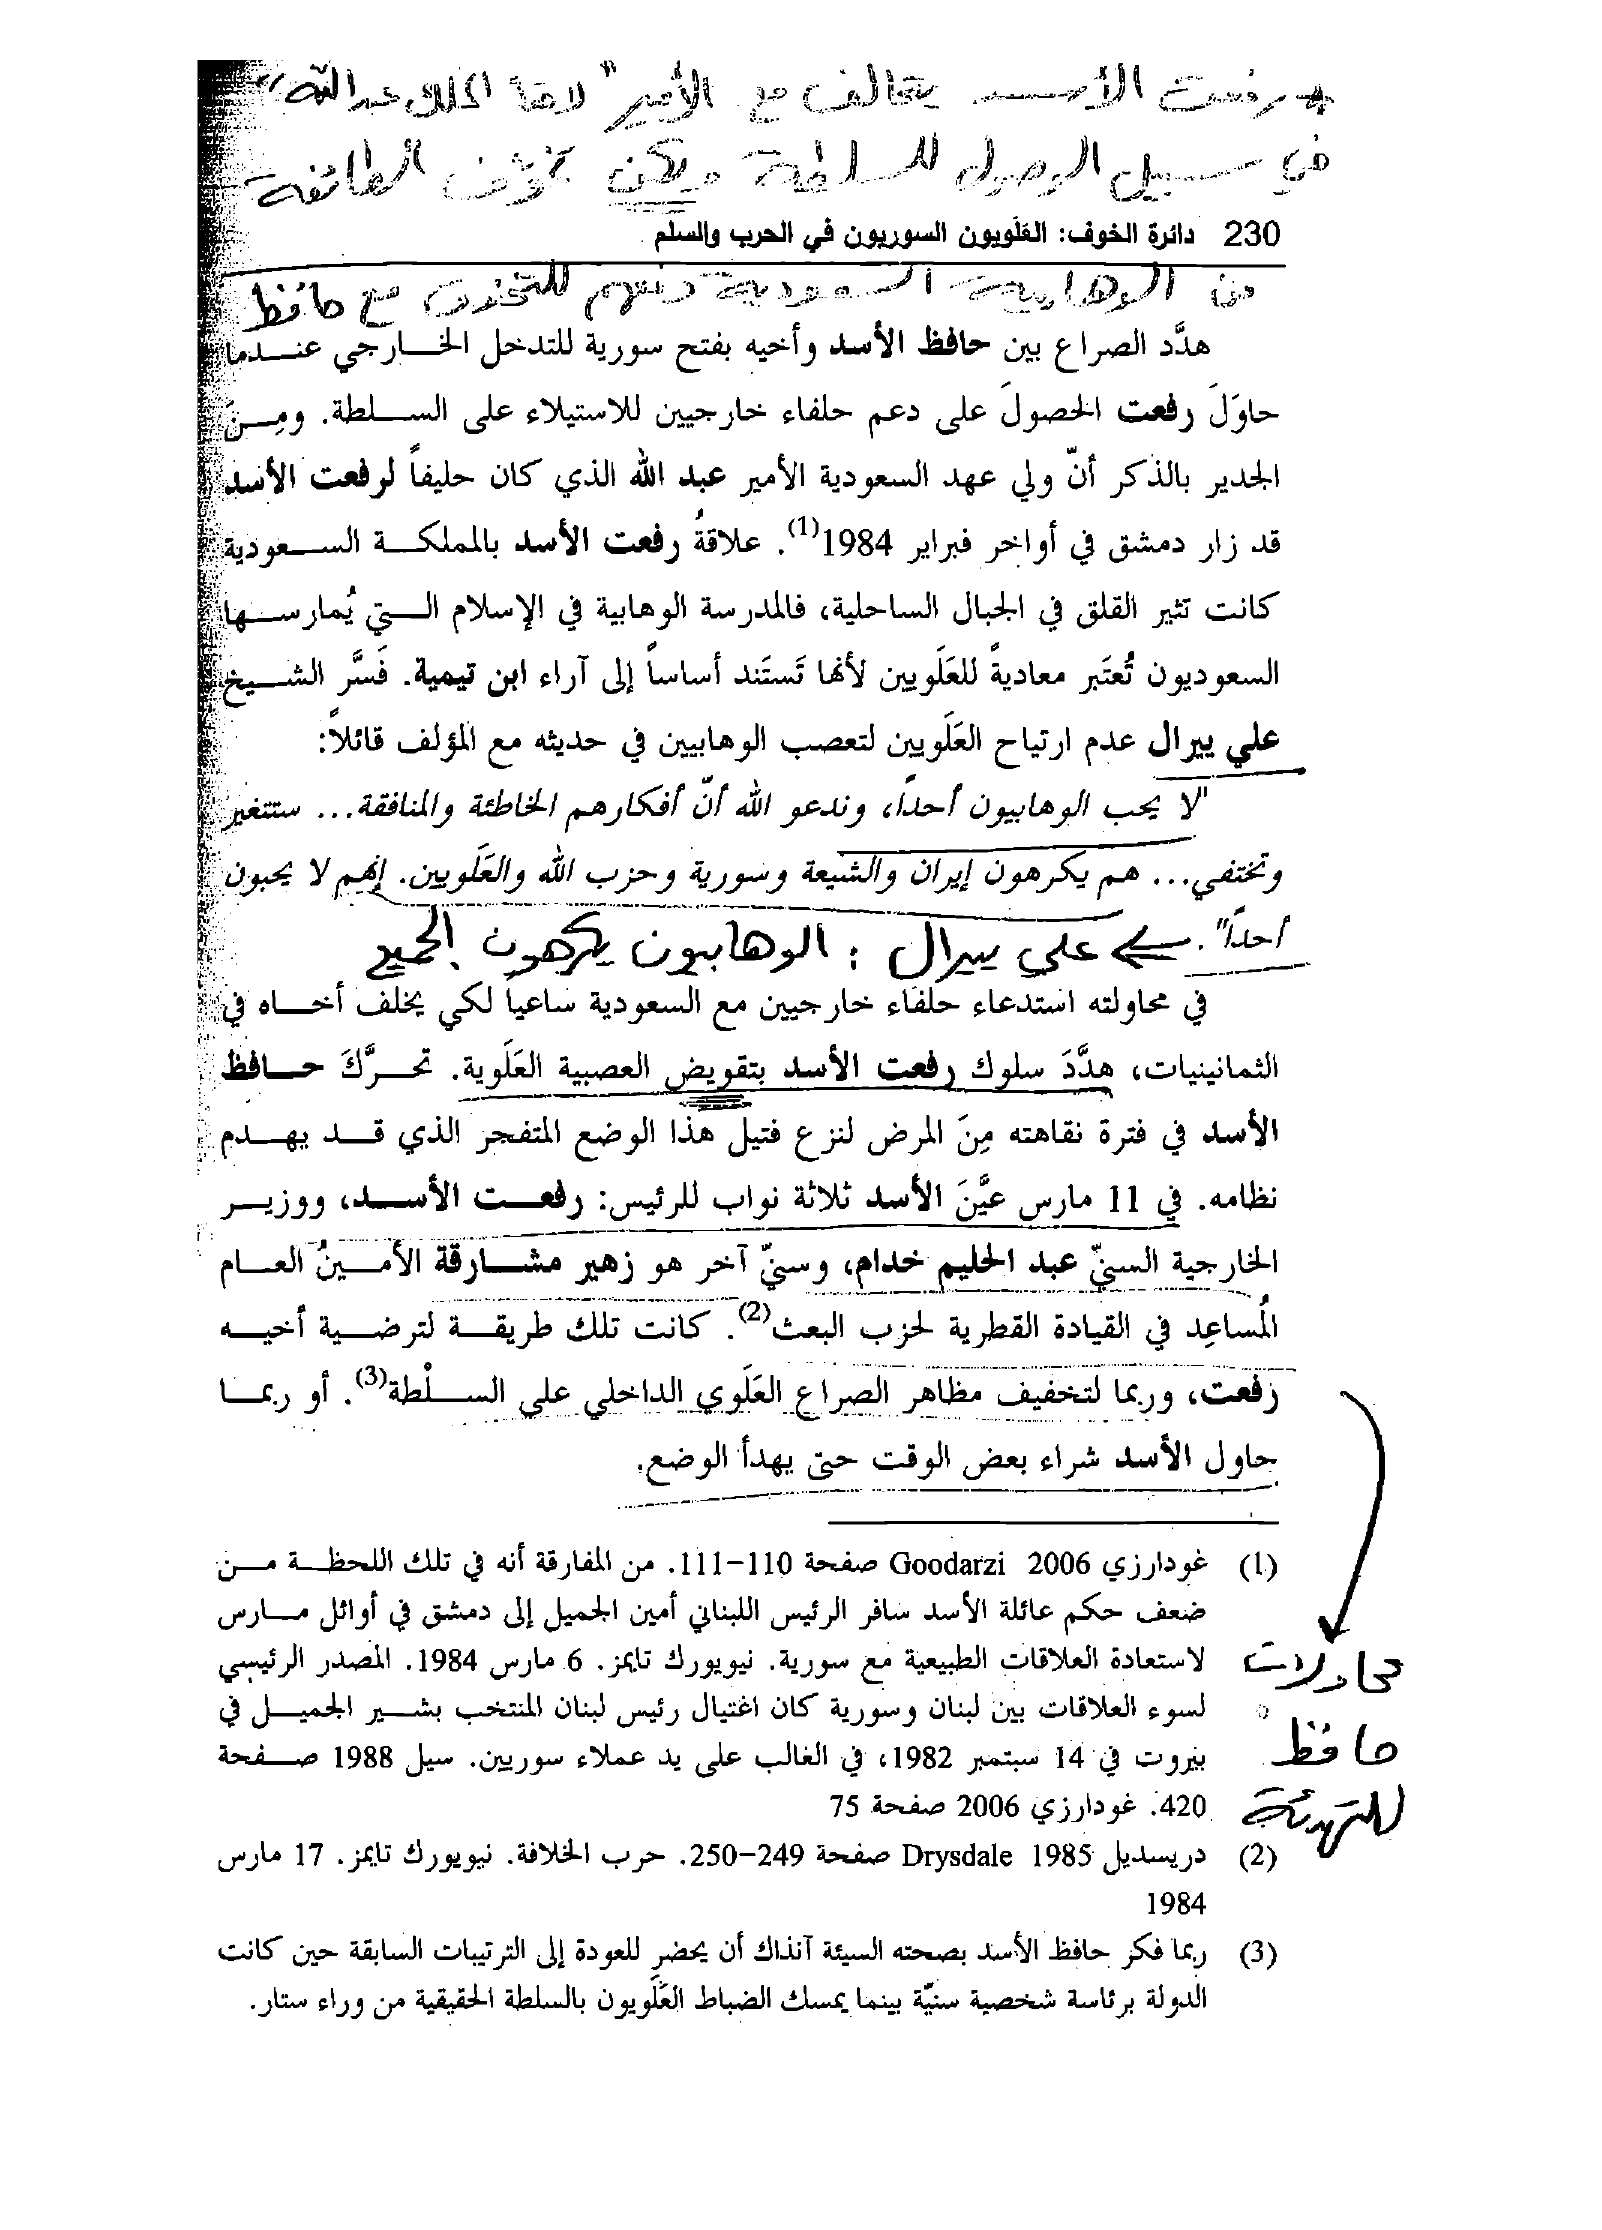 * رفعت الأسد يتحالف مع الأمير "لاحقا الملك عبدالله"
في سبيل الوصول للسلطة ولكن تخوّف الطائفة
230 دائرة الخوف: العَلَويون السوريون في الحرب والسلم
من الوهابية السعودية دفعهم للتخندق مع حافظ
هدَّد الصراع بين حافظ الأسد وأخيه بفتح سورية للتدخل الخارجي عندما
حاوَلَ رفعت الحصولَ على دعم حلفاء خارجيين للاستيلاء على السلطة. ومِنَ
الجدير بالذكر أنّ ولي عهد السعودية الأمير عبد الله الذي كان حليفاً لرفعت الأسد
قد زار دمشق في أواخر فبراير 1984(1). علاقةُ رفعت الأسد بالمملكة السعودية
كانت تثير القلق في الجبال الساحلية، فالمدرسة الوهابية في الإسلام التي يُمارسها
السعوديون تُعتَبر معاديةً للعَلَويين لأنها تَستَند أساساً إلى آراء ابن تيمية. فَسَّر الشيخ
علي ييرال عدم ارتياح العَلَويين لتعصب الوهابيين في حديثه مع المؤلف قائلاً:
"لا يحب الوهابيون أحداً، وندعو الله أنّ أفكارهم الخاطئة والمنافقة... ستتغير
وتختفي... هم يكرهون إيران والشيعة وسورية وحزب الله والعَلَويين. إنهم لا يحبون
أحداً".
علي ييرال : الوهابيون يكرهون الجميع
في محاولته استدعاء حلفاء خارجيين مع السعودية ساعياً لكي يخلف أخاه في
الثمانينيات، هدَّدَ سلوك رفعت الأسد بتقويض العصبية العَلَوية. تحرَّكَ حافظ
الأسد في فترة نقاهته مِنَ المرض لنزع فتيل هذا الوضع المتفجر الذي قد يهدم
نظامه. في 11 مارس عيَّنَ الأسد ثلاثة نواب للرئيس: رفعت الأسد، ووزير
الخارجية السنيّ عبد الحليم خدام، وسنيّ آخر هو زهير مشارقة الأمينُ العام
المُساعِد في القيادة القطرية لحزب البعث(2). كانت تلك طريقة لترضية أخيه
رفعت، وربما لتخفيف مظاهر الصراع العَلَوي الداخلي على السلْطة(3). أو ربما
حاول الأسد شراء بعض الوقت حتى يهدأ الوضع.
(1) غودارزي Goodarzi 2006 صفحة 110-111. من المفارقة أنه في تلك اللحظة من
ضعف حكم عائلة الأسد سافر الرئيس اللبناني أمين الجميل إلى دمشق في أوائل مارس
لاستعادة العلاقات الطبيعية مع سورية. نيويورك تايمز. 6 مارس 1984. المصدر الرئيسي
لسوء العلاقات بين لبنان وسورية كان اغتيال رئيس لبنان المنتخب بشير الجميل في
بيروت في 14 سبتمبر 1982، في الغالب على يد عملاء سوريين. سيل 1988 صفحة
420. غودارزي 2006 صفحة 75
(2) دريسديل Drysdale 1985 صفحة 249-250. حرب الخلافة. نيويورك تايمز. 17 مارس
1984
(3) ربما فكر حافظ الأسد بصحته السيئة آنذاك أن يحضر للعودة إلى الترتيبات السابقة حين كانت
الدولة برئاسة شخصية سنيّة بينما يمسك الضباط العَلَويون بالسلطة الحقيقية من وراء ستار.
محاولات
حافظ
للتهدئة